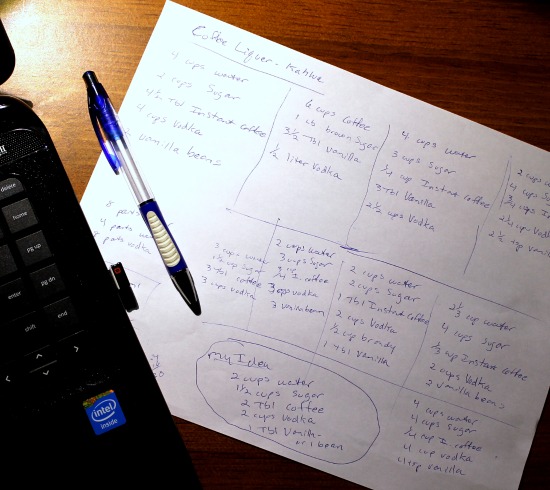 Coffee Liquer - Kahlua
4 cups water
2 cups Sugar
4 1/2 Tbl Instant Coffee
4 cups Vodka
vanilla beans
6 cups Coffee
1 lb brown Sugar
3 1/2 Tbl Vanilla
1/2 liter Vodka
4 cups water
3 cups Sugar
1/4 cup Instant Coffee
3 Tbl Vanilla
2 1/2 cups Vodka
2 cups
4 cups Su
cup Ins
2 1/4 cup Vod
2 1/2 tsp Van
8 parts
4 parts
parts vodka
3 cups water
1 1/2 cup Sugar
3 Tbl Coffee
3 cups vodka
2 cups water
3 cups Sugar
I. coffee
3 cups vodka
3 vanilla bean
2 cups water
2 cups Sugar
1 Tbl Instant Coffee
2 cups Vodka
1/2 cup brandy
1 Tbl Vanilla
2 1/3 cup water
4 cups Sugar
1/3 cup Instant Coffee
2 cups Vodka
2 Vanilla beans
My Idea
2 cups water
1 1/2 cups Sugar
2 Tbl Coffee
2 cups Vodka
1 Tbl Vanilla
or 1 bean
4 cups water
4 cups Sugar
1/4 cup I. coffee
4 cup vodka
4 tsp vanilla
delete
home
pg up
enter
pg dn
shift
end
intel
inside